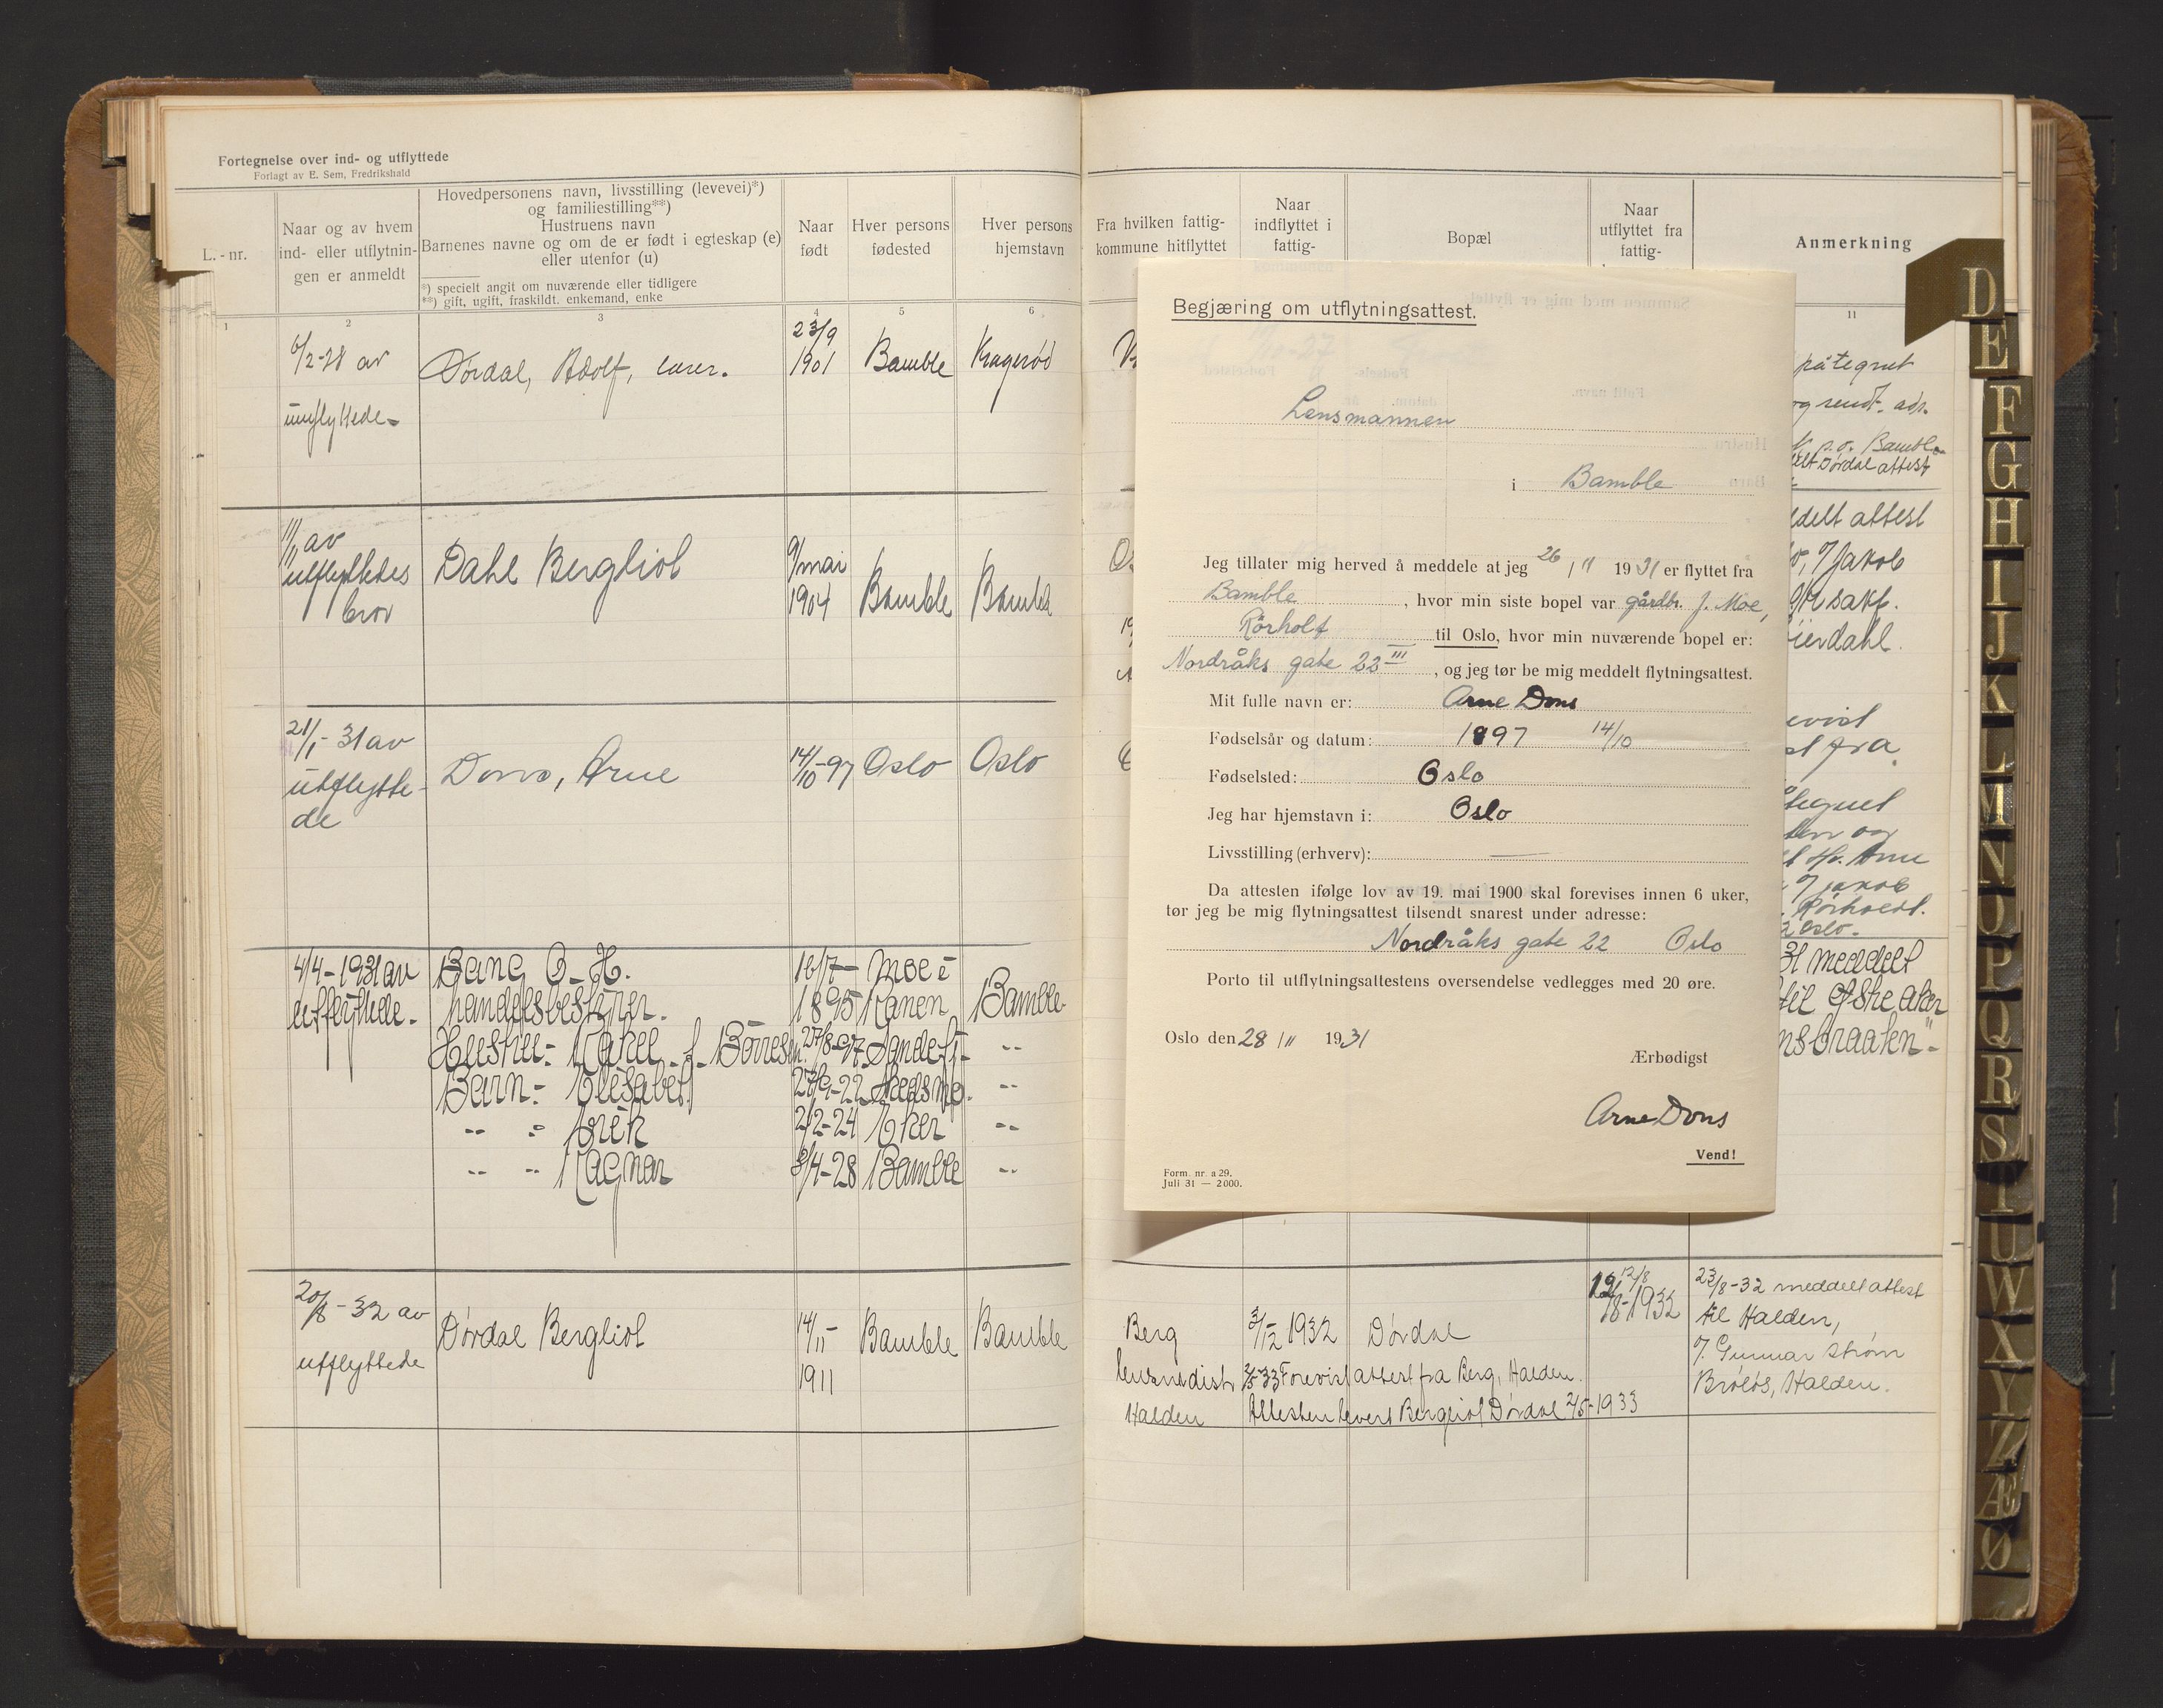 Fortegnelse over ind- og utflyttede
Forlagt av E. Sem, Fredrikshald
L.-nr.
Naar og av hvem
ind- eller utflytnin-
gen er anmeldt
Hovedpersonens navn, livsstilling (levevei)*)
og familiestilling**)
Hustruens navn
Barnenes navne og om de er født i egteskap (e)
eller utenfor (u)
*) specielt angit om nuværende eller tidligere
**) gift, ugift, fraskildt. enkemand, enke
Naar
født
Hver persons
fødested
Hver persons
hjemstavn
1 2 3 4 5 6
6/2-28 av
Dørdal, Adolf,
23/9
1901
Bamble
Kragerø
11/11 av
utflyttedes
bror
Dahl Bergliot
9/mai
1904
Bamble
Bamble
21/1-31 av
utflytte-
de
Dons, Arne
14/10-97
Oslo
Oslo
4/4-1931 av
utflyttede.
Bang O. H.
handelsbestyrer.
16/7-
1895
Moe i
Ranen
Bamble
Hustru:- Rakel f. Børresen
27/8-97
Sandefj-
--
Barn:- Elisabet
-22 Skedsmo.
--
-- : Erik
2/2-24
Aker
--
-- -- Ragnar
3/4-28
Bamble
--
20/8-32 av
utflyttede
Dørdal Bergliot
14/11-
1911
Bamble
Bamble
Fra hvilken fattig-
kommune hitflyttet
Naar
indflyttet i
fattig-
Bopæl
Naar
utflyttet fra
fattig-
Anmerkning
11
påtegnet
og sendt. adr.
p.o. Bamble
Dørdal attest
attest
Jakob
sakf.
fra
Arne
Jakob
Rørholt.
Oslo.
31 meddelt
til Aker
Begjæring om utflytningsattest.
Lensmannen
i Bamble
Jeg tillater mig herved å meddele at jeg 26/11 1931 er flyttet fra
Bamble, hvor min siste bopel var gårdbr. J. Moe,
Rørholt til Oslo, hvor min nuværende bopel er:
Nordråks gate 22 III, og jeg tør be mig meddelt flytningsattest.
Mit fulle navn er: Arne Dons
Fødselsår og datum: 1897 14/10
Fødselsted: Oslo
Jeg har hjemstavn i: Oslo
Livsstilling (erhverv): —
Da attesten ifølge lov av 19. mai 1900 skal forevises innen 6 uker,
tør jeg be mig flytningsattest tilsendt snarest under adresse:
Nordråks gate 22 Oslo
Porto til utflytningsattestens oversendelse vedlegges med 20 øre.
Oslo den 28/11 1931
Ærbødigst
Arne Dons
Vend!
Form. nr. a 29.
Juli 31 — 2000.
Berg
lensm.distr
Halden
3/12 1932
Dørdal
12/8-1932
23/8-32 meddelt attest
til Halden,
Gunnar Strøm
Halden.
2/5-33 Forevist attest fra Berg, Halden.
Attesten levert Bergliot Dørdal 2/5-1933
D
E
F
G
H
I
J
K
L
M
N
O
P
Q
R
S
T
U
W
X
Y
Z
Æ
Ø